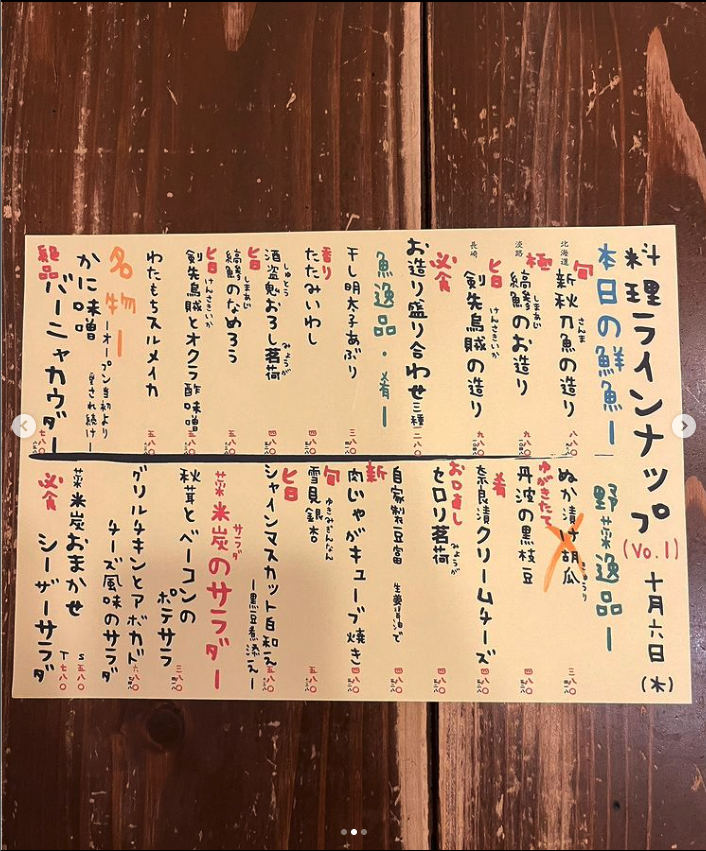 料理ラインナップ (Vo.1) 十月六日(木)
本日の鮮魚ー
旬
北海道 新秋刀魚の造り 八八〇
さんま
極
淡路 縞鯵のお造り 九八〇
しまあじ
旨
長崎 剣先烏賊の造り 九八〇
けんさきいか
必食
お造り盛り合わせ 三種
魚逸品・肴ー
干し明太子あぶり 三八〇
香り
たたみいわし 四八〇
酒盗鬼おろし茗荷 四八〇
しゅとう
みょうが
旨
縞鯵のなめろう 五八〇
しまあじ
旨
剣先烏賊とオクラ酢味噌 五八〇
けんさきいか
わたもちスルメイカ 五八〇
名物ー
ーオープン当初より
愛され続けー
かに味噌
バーニャカウダー
絶品
野菜逸品ー
ぬか漬け胡瓜 三八〇
きゅうり
ゆがきたて
丹波の黒枝豆 四八〇
肴
奈良漬クリームチーズ 四八〇
お口直し
セロリ茗荷 四八〇
みょうが
自家製豆富 生姜醤油で 四八〇
新
肉じゃがキューブ焼き 四八〇
旬
雪見銀杏 五八〇
ゆきみぎんなん
旨
シャインマスカット白和え 五八〇
ー黒豆煮添えー
菜米炭のサラダー
サラダ
秋茸とベーコンの
ポテサラ 三八〇
グリルチキンとアボカド
チーズ風味のサラダ 六八〇
必食
菜米炭おまかせ
シーザーサラダ
S 五八〇
T 七八〇